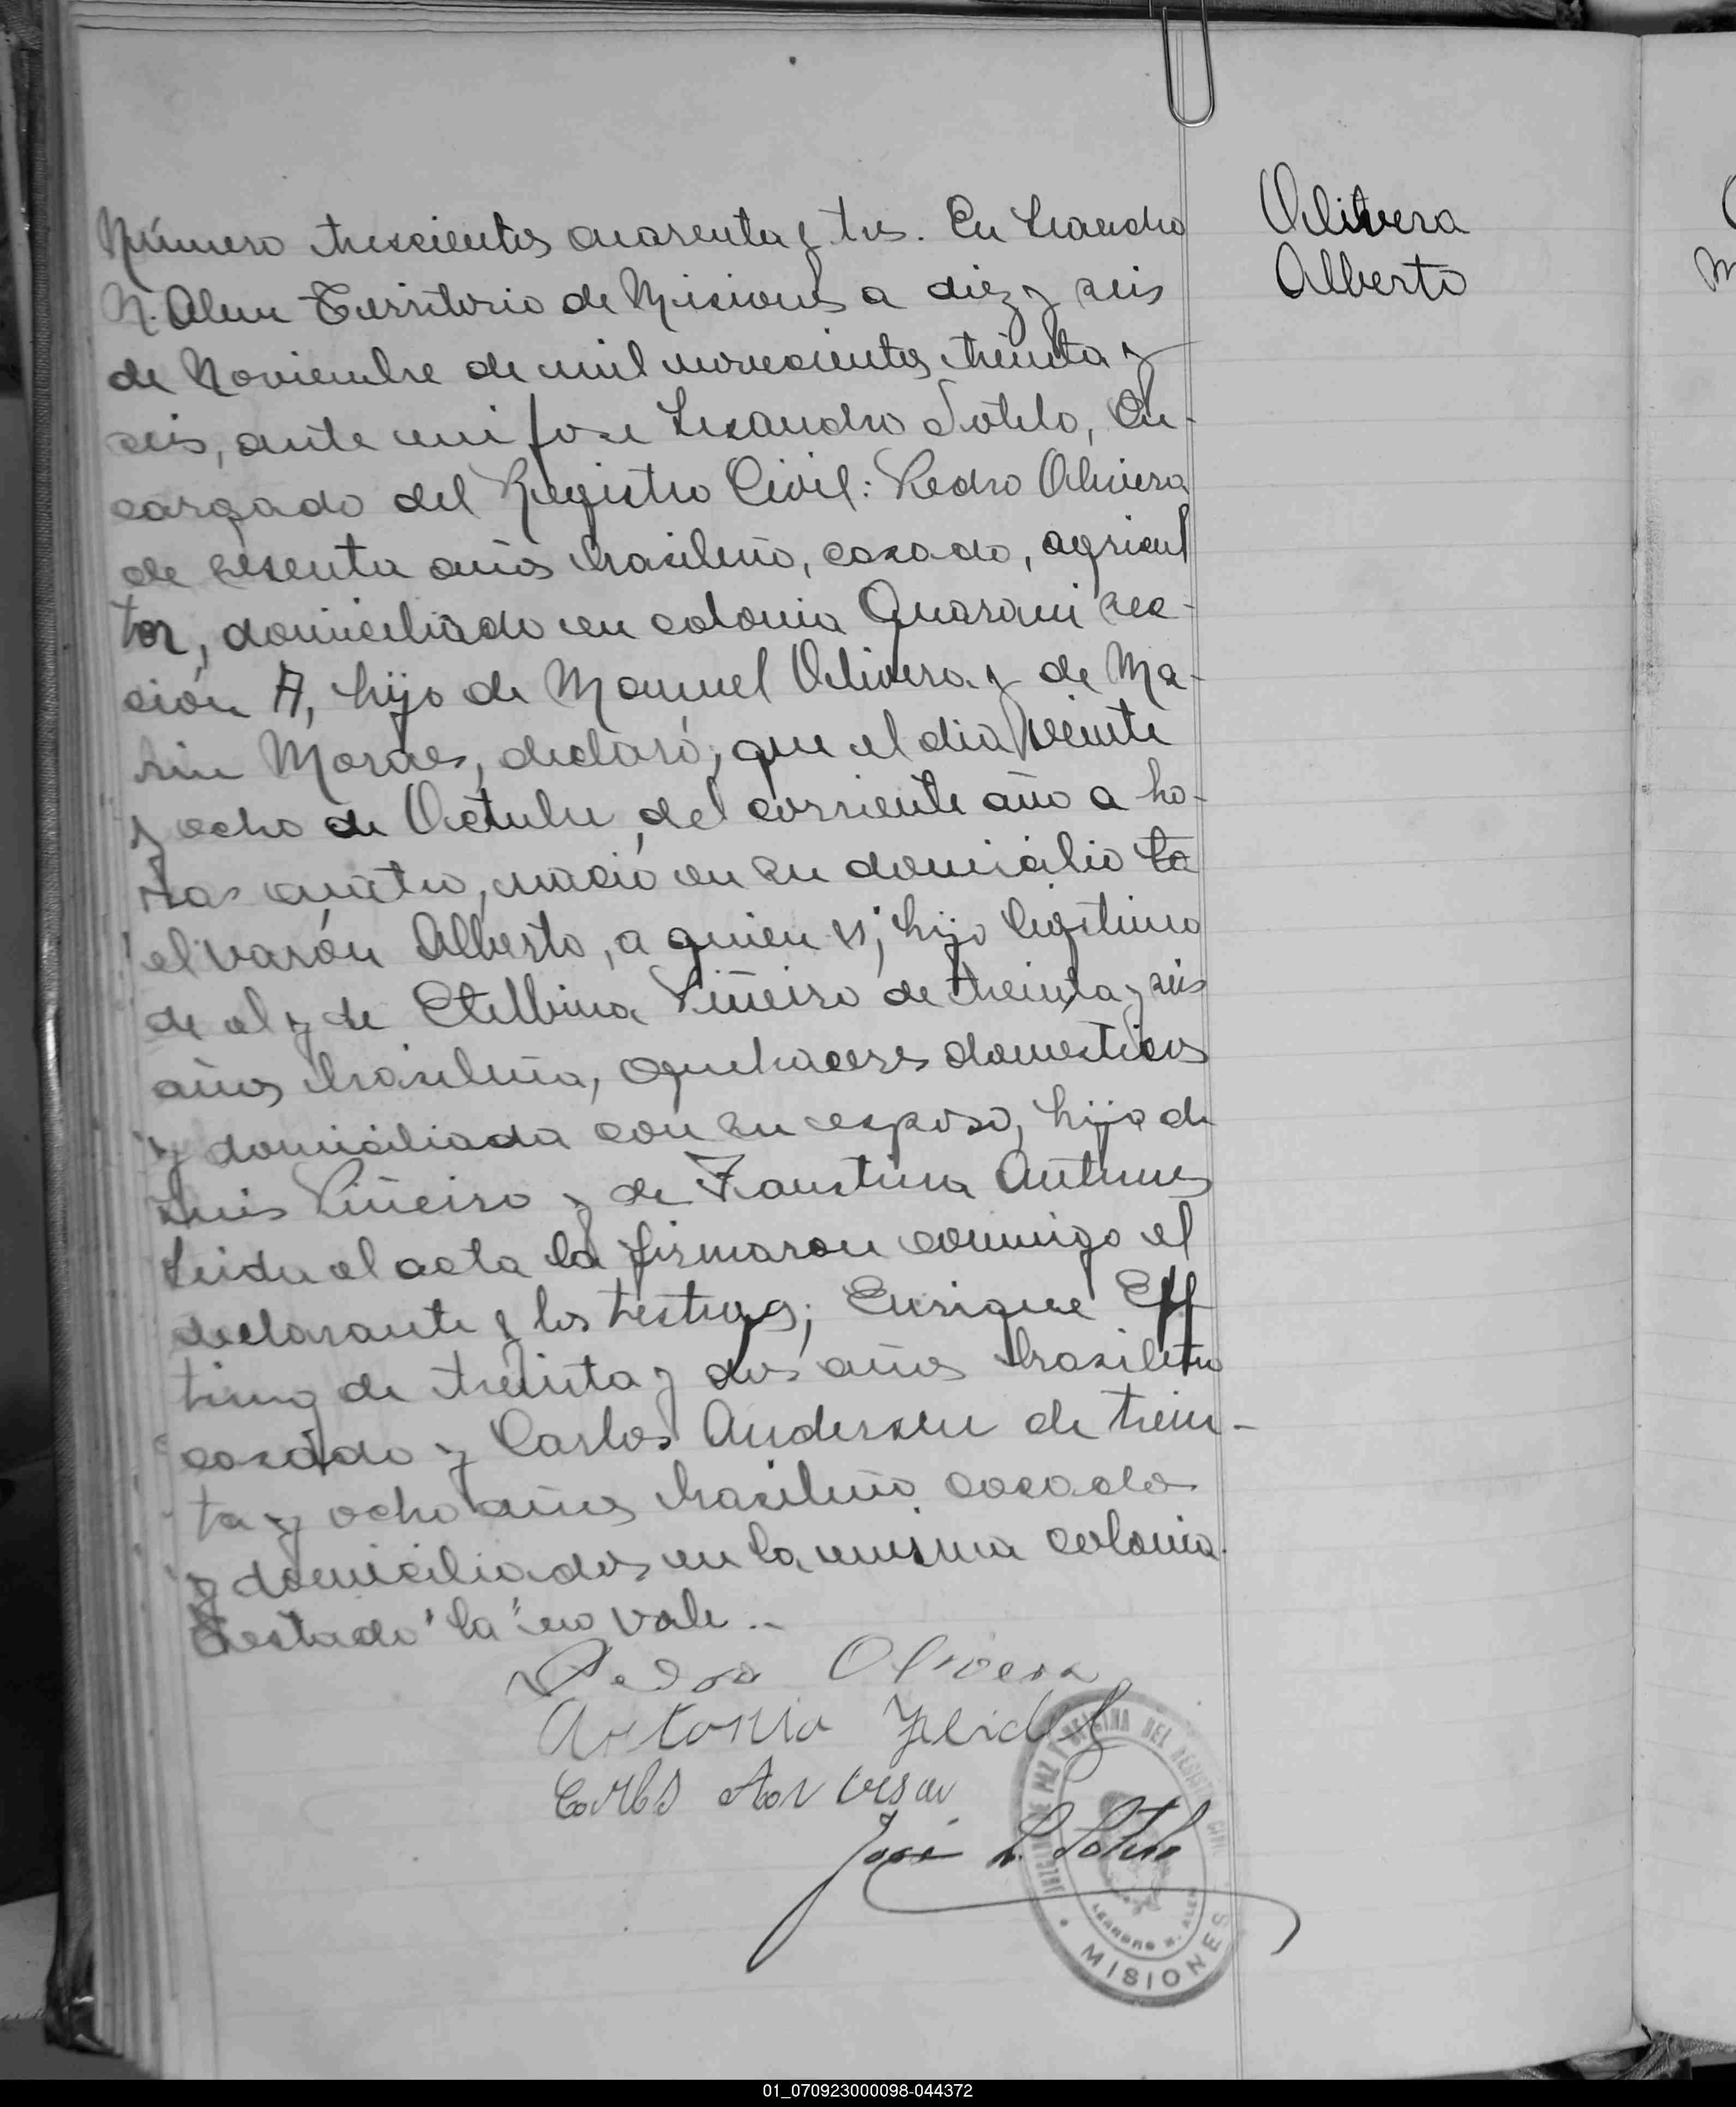 Olivera
Alberto
Número trescientos cuarenta y tres. En Leandro
N. Alem Territorio de Misiones a diez y seis
de Noviembre de mil novecientos treinta y
seis, ante mi Jose Lisandro Sotelo, En-
cargado del Registro Civil: Pedro Olivera
de sesenta años brasileño, casado, agricul
tor, domiciliado en colonia Guarani sec-
ción A, hijo de Manuel Olivera y de Ma-
rin Moraes, declaró; que el dia veinte
y ocho de Octubre del corriente año a ho-
ras cuatro, nació en su domicilio la
el varón Alberto, a quien vi; hijo legitimo
de el y de Etelbina Piñeiro de treinta y seis
años brasileña, quehaceres domesticos
y domiciliada con su esposo, hija de
Luis Piñeiro y de Faustina Antunes
Leida el acta la firmaron conmigo el
declarante y los testigos; Enrique
de treinta y dos años brasileño
casado y Carlos Andersen de trein-
ta y ocho años brasileño casado
y domiciliados en la misma colonia.
Testado "la" no vale..
Pedro Olivera
Antonio
Carlos
José L. Sotelo
JUZGADO DE PAZ Y OFICINA DEL REGISTRO CIVIL
LEANDRO N. ALEM
MISIONES
01_070923000098-044372